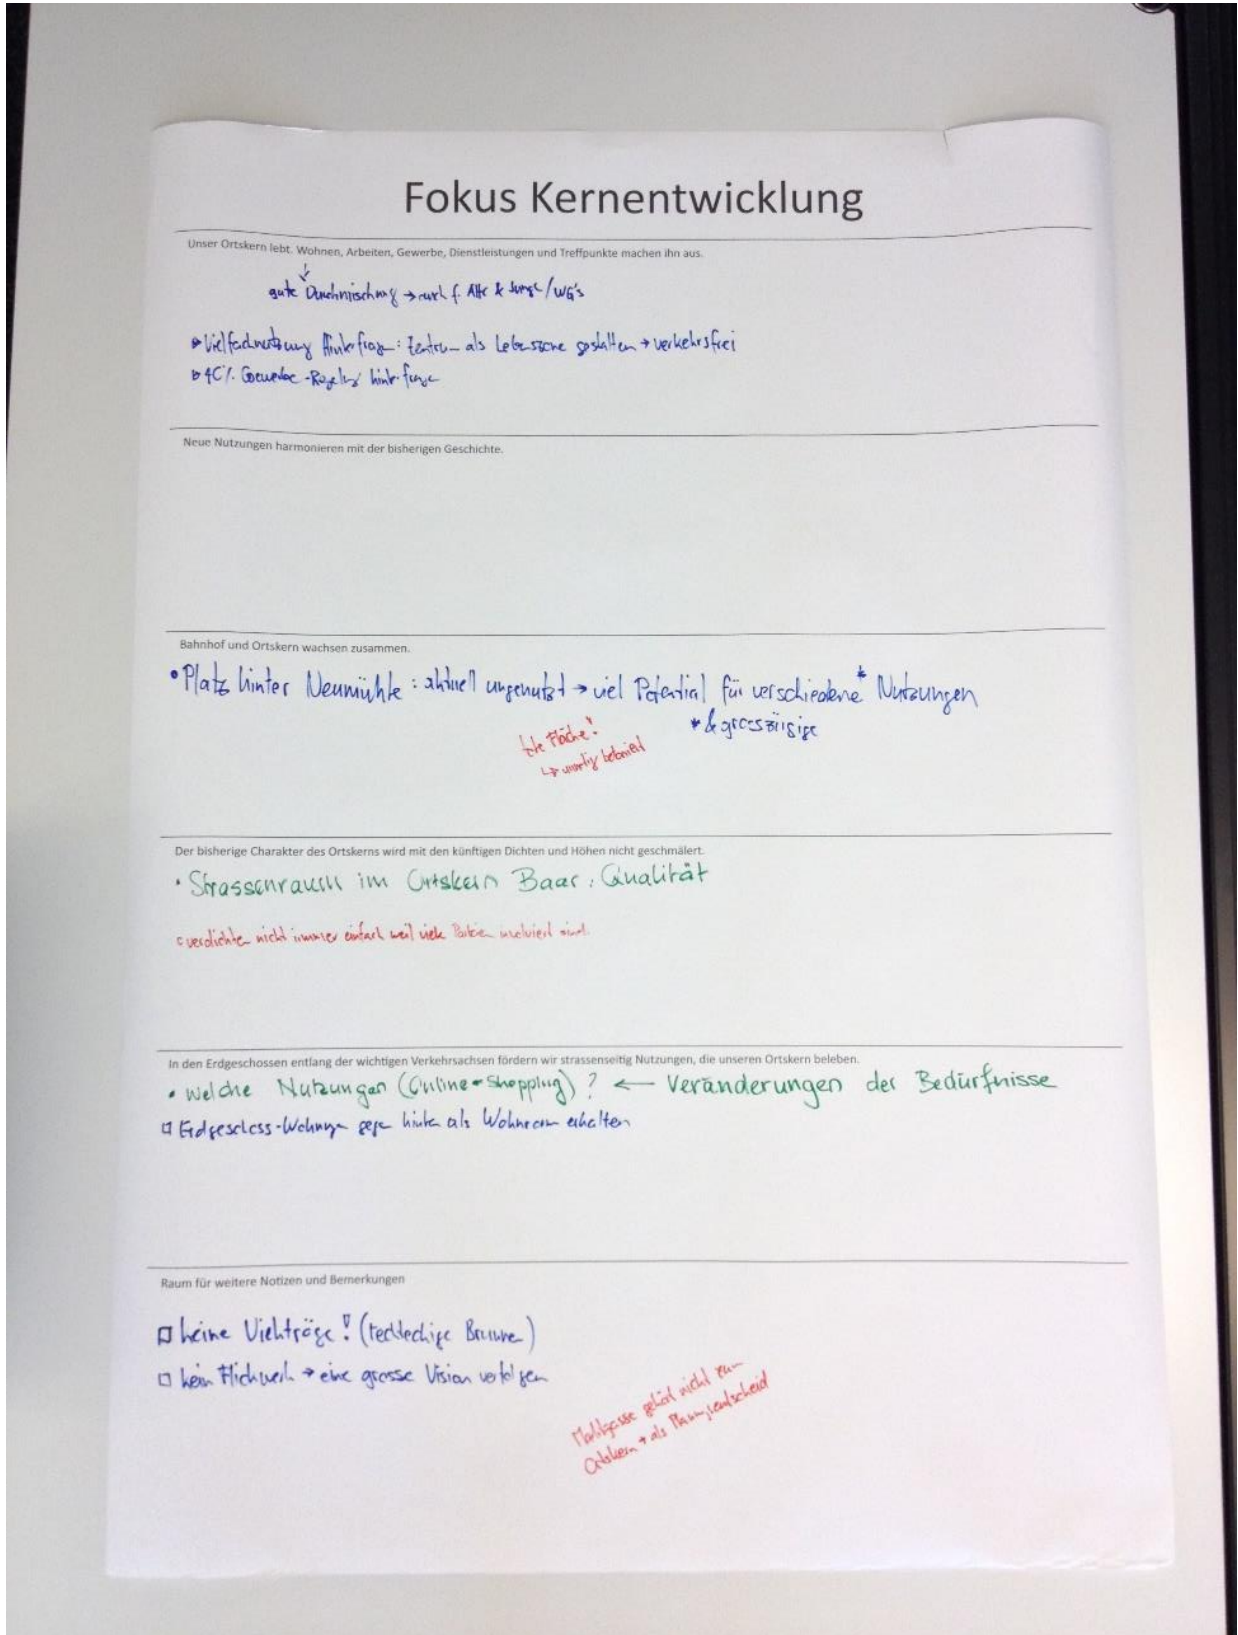 Fokus Kernentwicklung
Unser Ortskern lebt. Wohnen, Arbeiten, Gewerbe, Dienstleistungen und Treffpunkte machen ihn aus.
gute Durchmischung → auch f. Alte & Junge / WG's
Vielfachnutzung Hinterfragen: Zentrum als Lebenszone gestalten → verkehrsfrei
40% Gewerbe-Regelung hinterfragen
Neue Nutzungen harmonieren mit der bisherigen Geschichte.
Bahnhof und Ortskern wachsen zusammen.
• Platz hinter Neumühle: aktuell ungenutzt → viel Potential für verschiedene* Nutzungen
* & grosszügige
tote Fläche!
↳ unnötig betoniert
Der bisherige Charakter des Ortskerns wird mit den künftigen Dichten und Höhen nicht geschmälert.
• Strassenraum im Ortskern Baar: Qualität
verdichten nicht immer einfach weil viele Parteien involviert sind.
In den Erdgeschossen entlang der wichtigen Verkehrsachsen fördern wir strassenseitig Nutzungen, die unseren Ortskern beleben.
• Welche Nutzungen (Online-Shopping)? ← Veränderungen der Bedürfnisse
□ Erdgeschoss-Wohnungen gegen hinten als Wohnraum erhalten
Raum für weitere Notizen und Bemerkungen
□ keine Viehtröge! (rechteckige Brunnen)
□ kein Flickwerk → eine grosse Vision verfolgen
Marktgasse gehört nicht zum
Ortskern → als Planungsentscheid